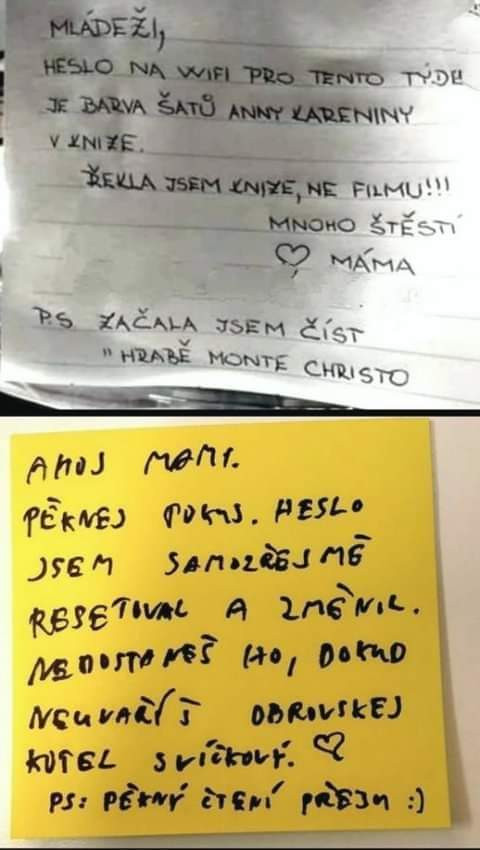 MLÁDEŽI,
HESLO NA WIFI PRO TENTO TÝDE
JE BARVA ŠATŮ ANNY KARENINY
V KNIZE.
ŘEKLA JSEM KNIZE, NE FILMU!!!
MNOHO ŠTĚSTÍ
♡, MÁMA
P.S ZAČALA JSEM ČÍST
"HRABĚ MONTE CHRISTO
AHOJ MAMI.
PĚKNEJ POKUS. HESLO
JSEM SAMOZŘEJMĚ
RESETOVAL A ZMĚNIL.
NEDOSTANEŠ HO, DOKUD
NEUVAŘÍŠ OBROVSKEJ
KOTEL SVÍČKOVÝ. ♡
PS: PĚKNÝ ČTENÍ PŘEJU :)